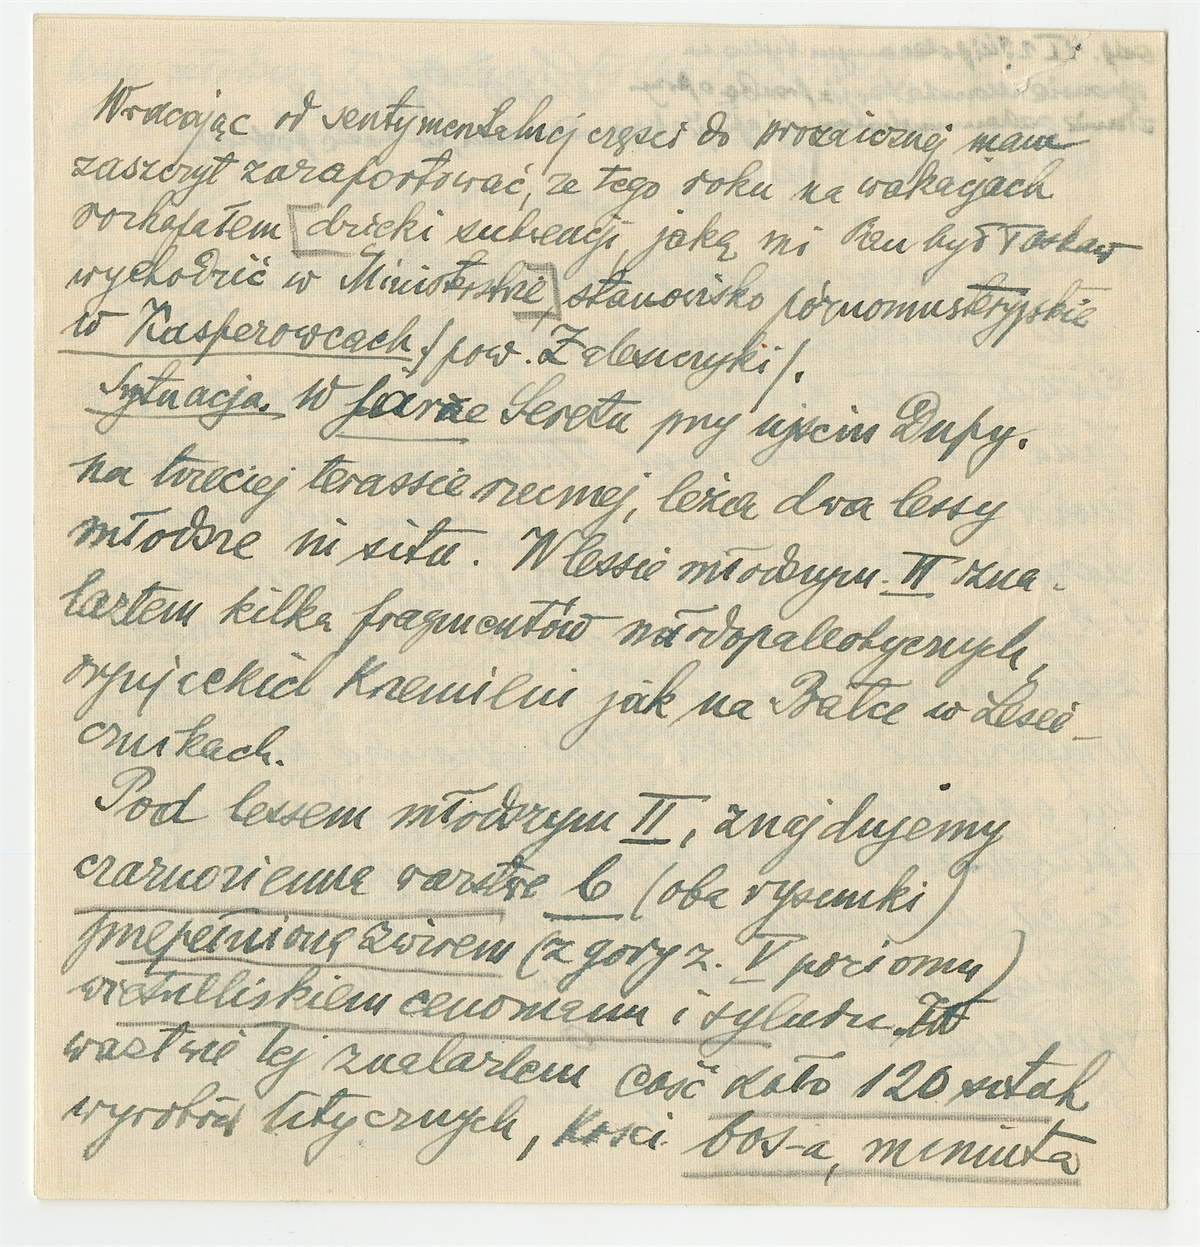 Wracając od sentymentalnej części do prozaicznej mam
zaszczyt zaraportować, że tego roku na wakacjach
rozkopałem [dzięki subwencji, jaką mi Pan był łaskaw
wychodzić w Ministerstwie] stanowisko późnomusteryjskie
w Kasperowcach /pow. Zaleszczyki/.
Sytuacja. W jarze Seretu przy ujściu Dupy.
na trzeciej terassie rzecznej, leżą dwa lessy
młodsze in situ. W lessie młodszym II zna-
lazłem kilka fragmentów młodopaleolitycznych,
oryniackich Krzemieni jak na Białce w Lesie-
cznikach.
Pod lessem młodszym II, znajdujemy
czarnoziemną warstwę b (oba rysunki)
przepełnioną żwirem (z góry z. V poziomu)
cenomanu i syluru. W
warstwie tej znalazłem coś koło 120 sztuk
wyrobów litycznych, kości bos-a, mamuta